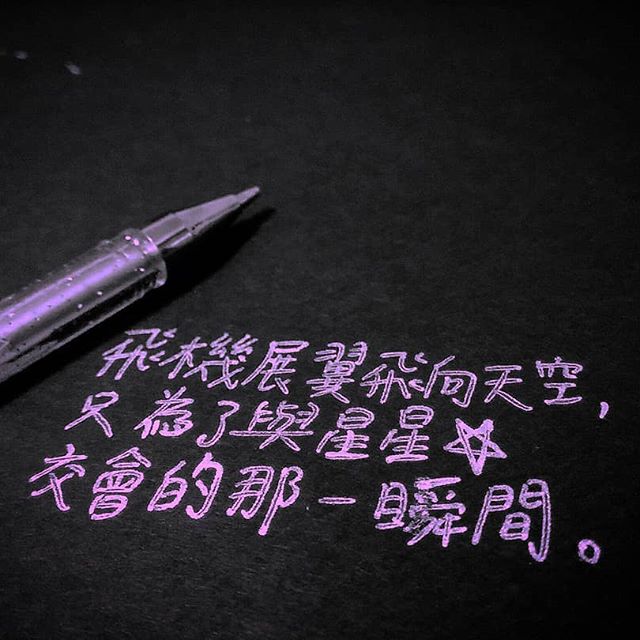 飛機展翼飛向天空,
只為了與星星☆
交會的那一瞬間。